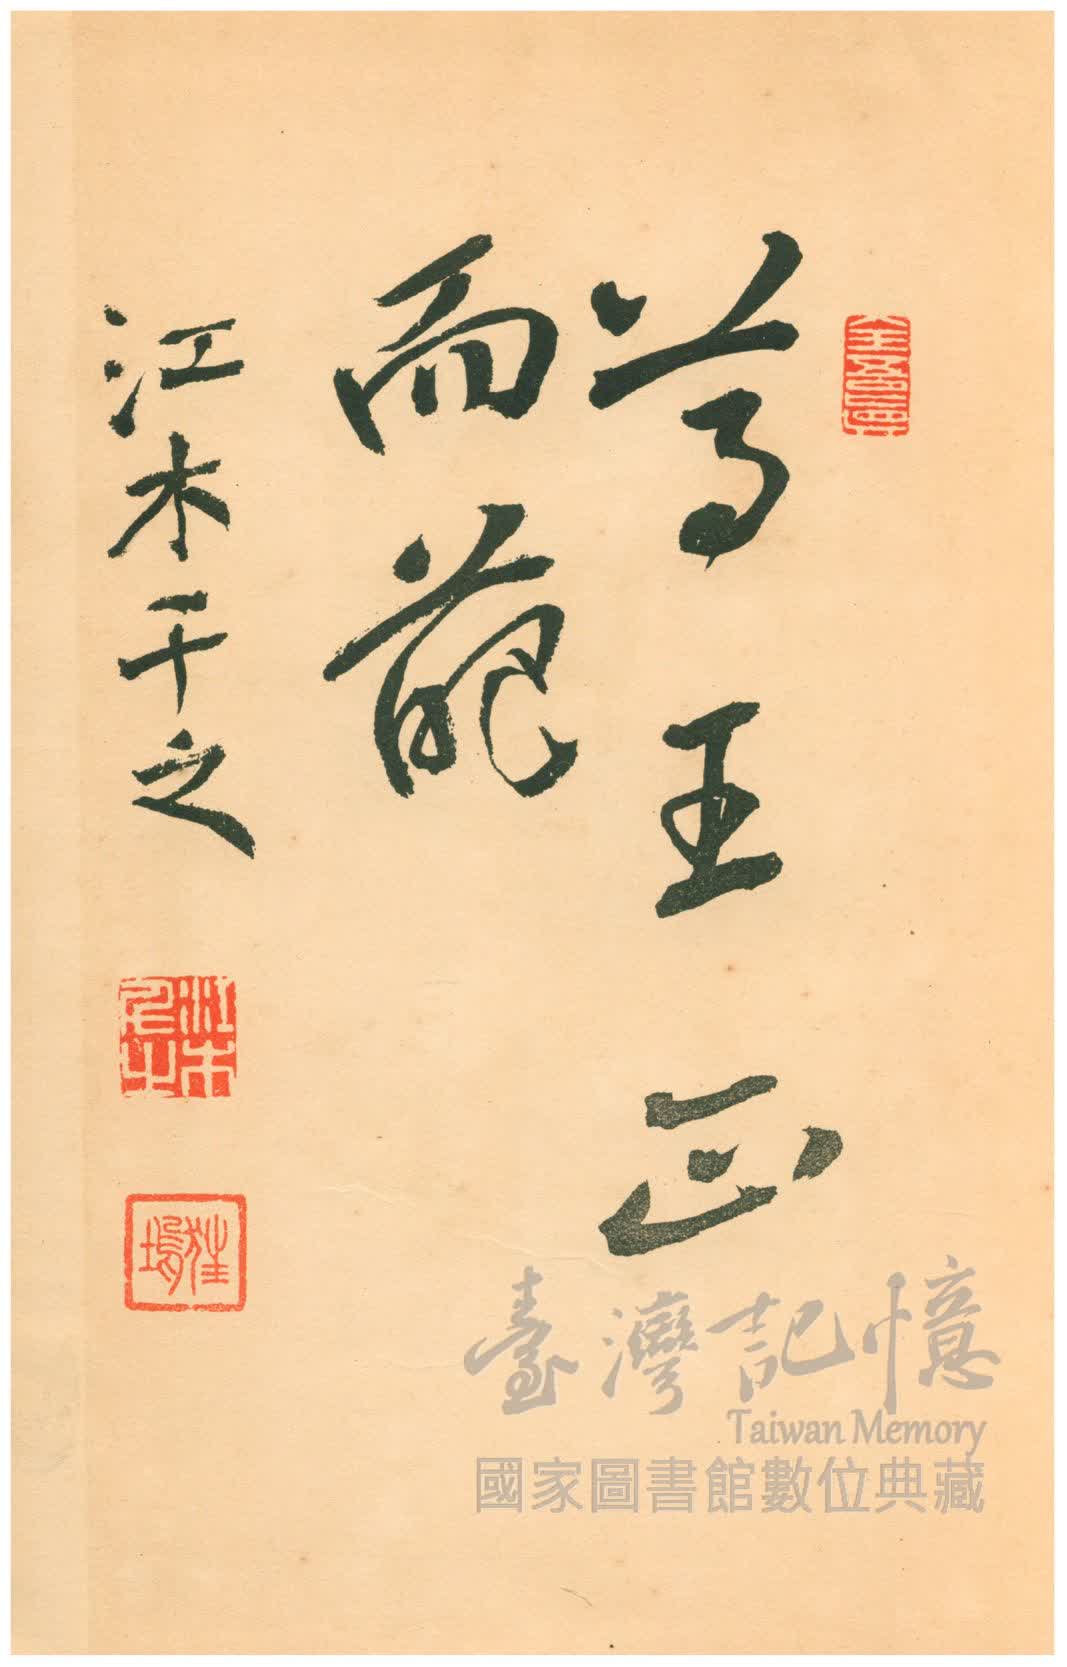 王正
而葩
江木千之
江木千之
臺灣記憶
Taiwan Memory
國家圖書館數位典藏